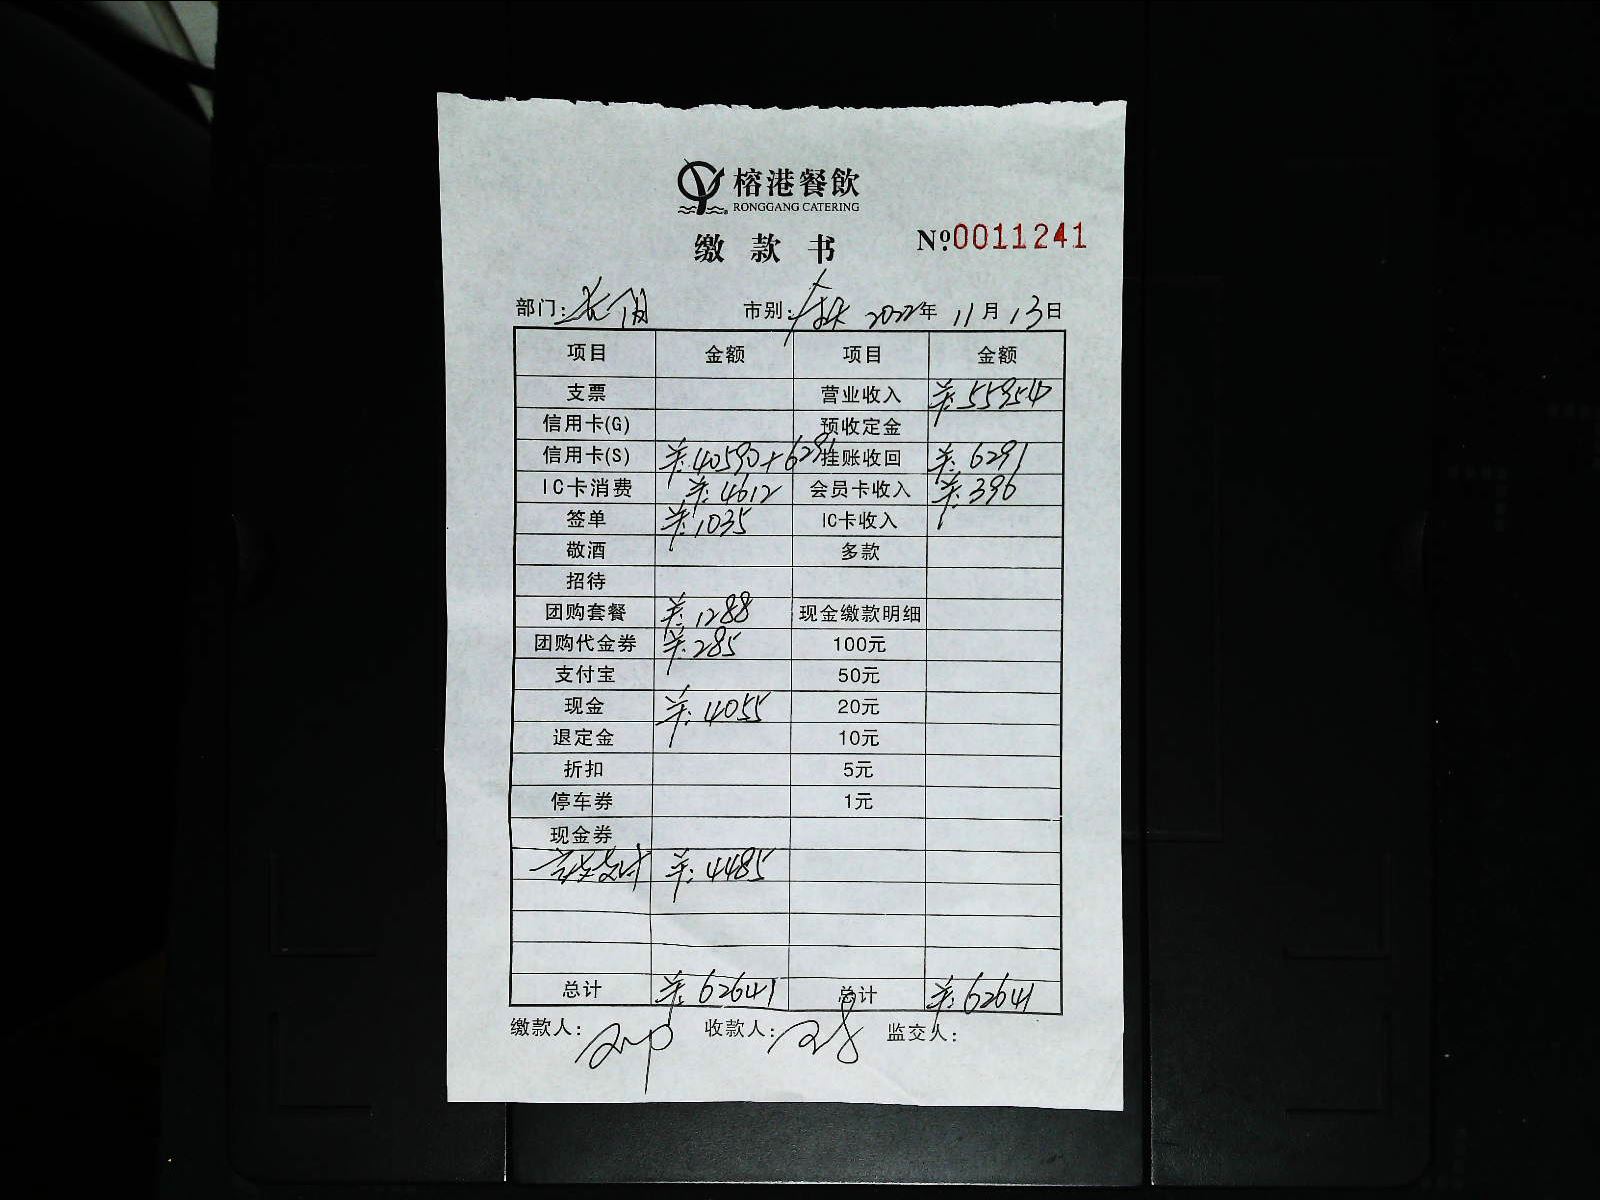 榕港餐飲
RONGGANG CATERING
缴款书 Nº0011241
部门: 市别: 2022年11月13日
项目 金额 项目 金额
支票 营业收入 羊:55954
信用卡(G) 预收定金
信用卡(S) 羊:40590+6291 挂账收回 羊:6291
IC卡消费 羊:4612 会员卡收入 羊:396
签单 羊:1035 IC卡收入
敬酒 多款
招待
团购套餐 羊:1288 现金缴款明细
团购代金券 羊:285 100元
支付宝 50元
现金 羊:4055 20元
退定金 10元
折扣 5元
停车券 1元
现金券
羊:4485
总计 羊:62641 总计 羊:62641
缴款人: 收款人: 监交人: